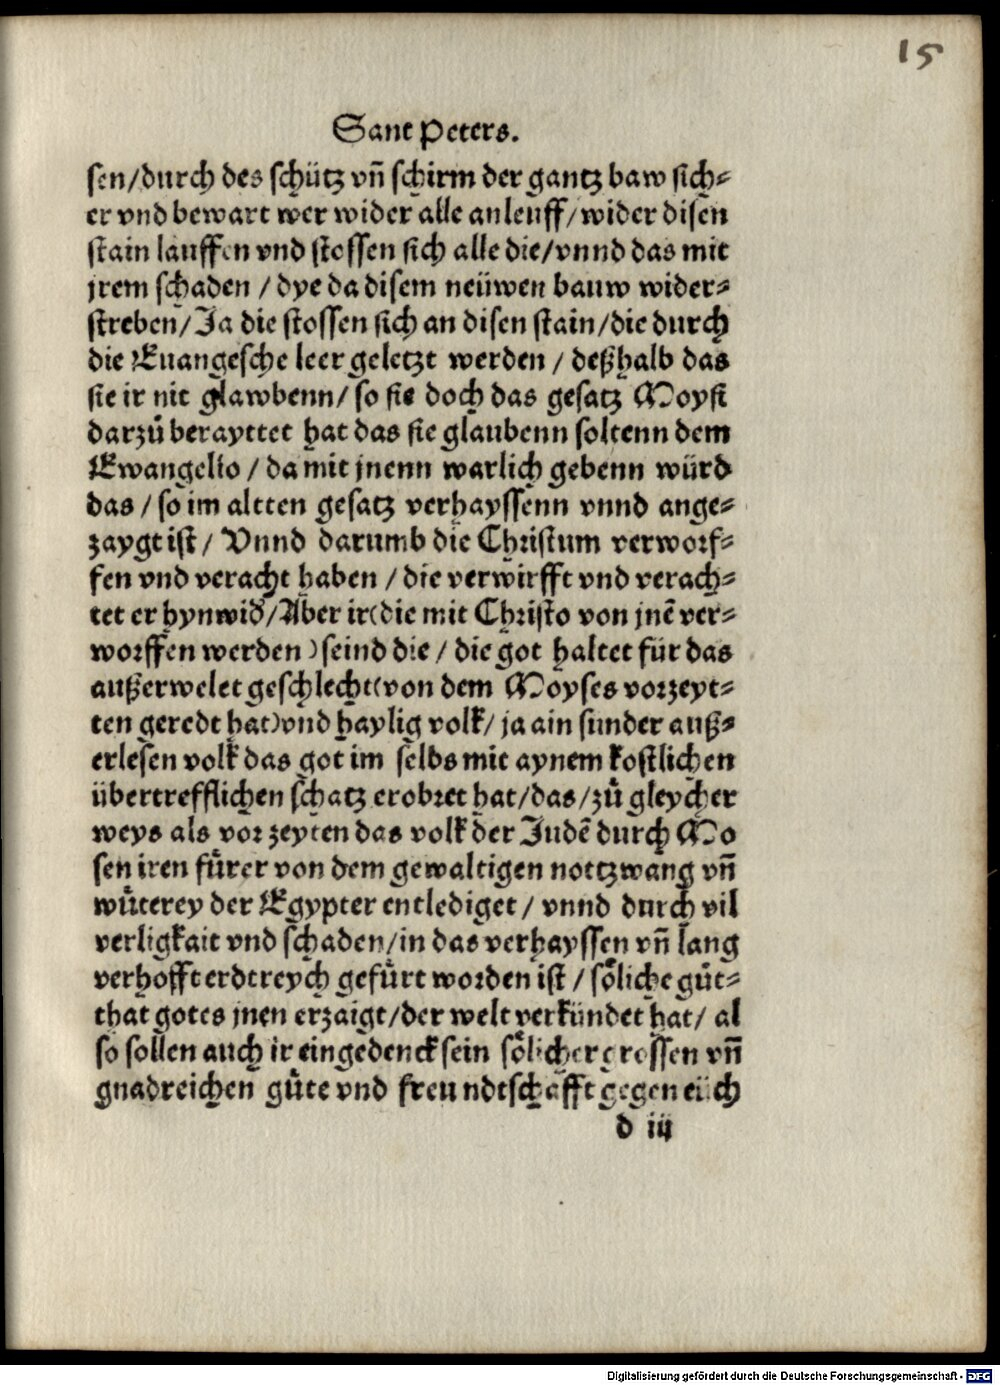 15
Sant Peters.
sen/durch des schütz vñ schirm der gantz baw sich⸗
er vnd bewart wer wider alle anleuff/wider disen
stain lauffen vnd stossen sich alle die/vnnd das mit
jrem schaden / dye da disem neüwen bauw wider⸗
streben/Ja die stossen sich an disen stain/die durch
die Euangesche leer geletzt werden / deßhalb das
sie ir nit glawbenn/ so sie doch das gesatz Moysi
darzů berayttet hat das sie glaubenn soltenn dem
Ewangelio / da mit jnenn warlich gebenn würd
das / so im altten gesatz verhayssenn vnnd ange⸗
zaygt ist / Vnnd darumb die Christum verworf⸗
fen vnd veracht haben / die verwirfft vnd verach⸗
tet er hynwid/Aber ir(die mit Christo von jnẽ ver⸗
worffen werden )seind die / die got haltet für das
außerwelet geschlecht(von dem Moyses vorzeyt⸗
ten geredt hat)vnd haylig volk/ ja ain sunder auß⸗
erlesen volk das got im selbs mit aynem kostlichen
übertrefflichen schatz erobret hat/das/zů gleycher
weys als vor zeyten das volk der Judẽ durch Mo
sen iren fürer von dem gewaltigen nottzwang vñ
wůterey der Egypter entlediget / vnnd durch vil
verligkait vnd schaden/in das verhayssen vñ lang
verhofft erdtreych gefůrt worden ist / soͤliche gůt⸗
that gotes jnen erzaigt/der welt verkündet hat/ al
so sollen auch ir eingedenck sein soͤlicher grossen vñ
gnadreichen gůte vnd freundtschafft gegen eüch
d iij
Digitalisierung gefördert durch die Deutsche Forschungsgemeinschaft - DFG